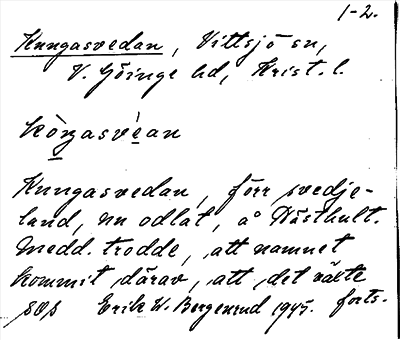 1-2.
Kungasvedan, Vittsjö sn,
V. Göinge hd, Krist. l.
Kungasvedan, förr svedje-
land, nu odlat, å Västhult.
Medd. trodde, att namnet
kommit därav, att det växte
Erik W. Bergenrud 1945. forts.